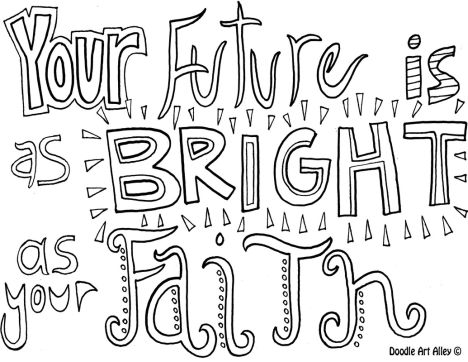 Your Future is
as BRIGHT
as your FaiTh
Doodle Art Alley ©